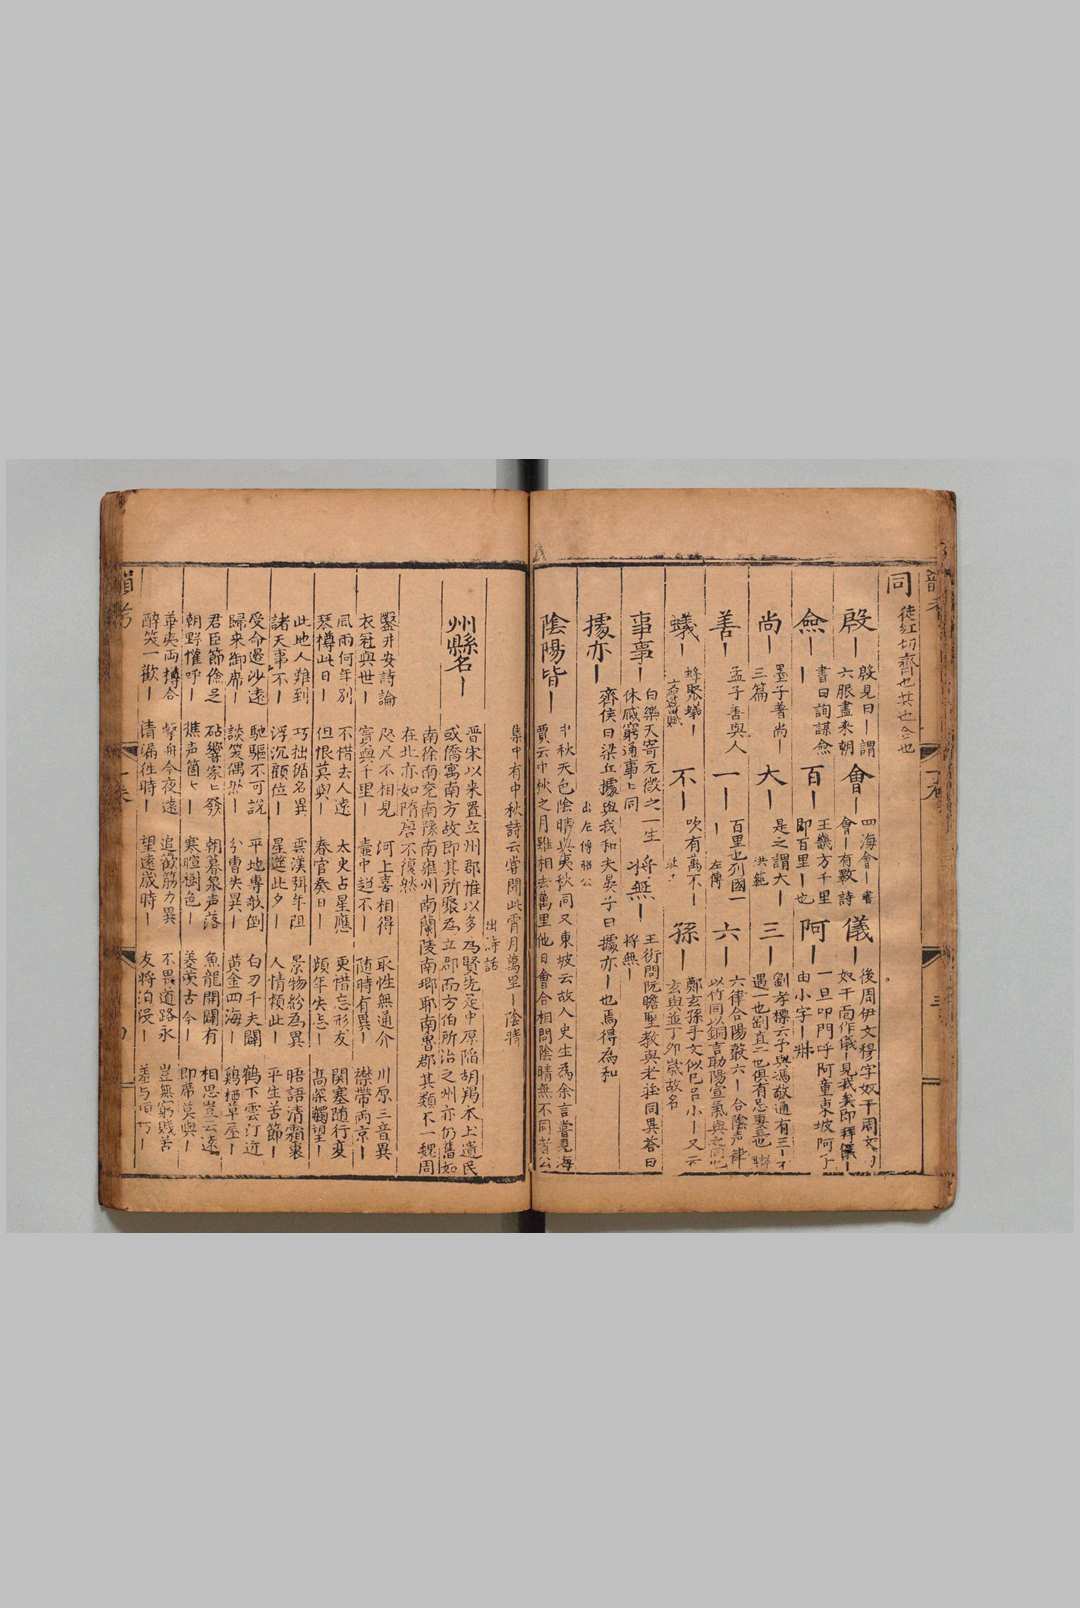 同 徒紅切齊也共也合也
殷｜ 殷見曰｜謂
六服盡來朝
會｜ 四海會｜書
會｜有數詩
儀｜ 後周伊文穆字奴干周文
奴干而作儀｜見我矣即拜儀｜
僉｜ 書曰詢謀僉
｜
百｜ 王畿方千里
即百里｜也
阿｜ 一旦叩門呼｜阿童東坡阿子
由小字｜
尚｜ 墨子著尚｜
三篇
大｜ 是之謂大｜
洪範
三｜ 劉孝標云予與馮敬通有三｜
遇一也
善｜ 孟子善與人
｜
一｜ 百里也列國一
｜左傳
六｜ 六律合陽聲六｜合陰聲律
以竹同以銅言助陽宣氣與之同也
蟻｜ 蜂聚蟻｜
不｜ 吹有萬不｜
孫｜ 鄭玄孫手文似己呂小｜又云
玄與並丁卯歲故名
事事｜ 白樂天寄元微之一生
休戚窮通事〻同
將無｜ 王衍問阮瞻聖教與老莊同異答曰
將無｜
據亦｜ 齊侯曰梁丘據與我和夫晏子曰據亦｜也焉得為和
出左傳
陰陽皆｜ 中秋天色陰晴與夷狄同又東坡云故人史生為余言嘗見海
賈云中秋之月雖相去萬里他日會合相問陰晴無不同者公
集中有中秋詩云嘗聞此宵月萬里｜陰晴
出詩話
州縣名｜ 晉宋以來置立州郡惟以多為賢先是中原陷胡羯本土遺民
或僑寓南方故即其所聚為立郡而方伯所治之州亦仍舊如
南徐南兗南豫南雍州南蘭陵南瑯耶南魯郡其類不一魏周
在北亦如隋唐不復然
鑿井安詩論 咫尺不相見 河上喜相得 取性無通介 川原三音異
衣冠與世｜ 實與千里｜ 壺中趣不｜ 隨時有異｜ 襟帶兩京｜
風雨何年別 不惜去人遠 太史占星應 更惜忘形友 關塞隨行變
琴樽此日｜ 但恨莫與｜ 春官奏日｜ 頻年失志｜ 高深觸望｜
此地人難到 巧拙循名異 雲漢彌年阻 景物紛為異 晤語清霜裹
諸天事不｜ 浮沉顧位｜ 星筵此夕｜ 人情頓此｜ 平生苦節｜
受命邊沙遠 馳驅不可說 平地專欹倒 白刃千夫闢 鶴下雲汀近
歸來御席｜ 談笑偶然｜ 分曹失異｜ 黃金四海｜ 鷄栖草屋｜
君臣節儉足 砧響家〻發 朝暮泉声落 魚龍開闢有 相思豈云遠
朝野懽呼｜ 樵声箇〻｜ 寒暄樹色｜ 菱芡古今｜ 即席莫與｜
華夷兩搏合 挐舟今夜遠 追歡筋力異 不畏道路永 豈無窮賤苦
醉笑一歡｜ 清漏往時｜ 望遠歲時｜ 友將泊沒｜